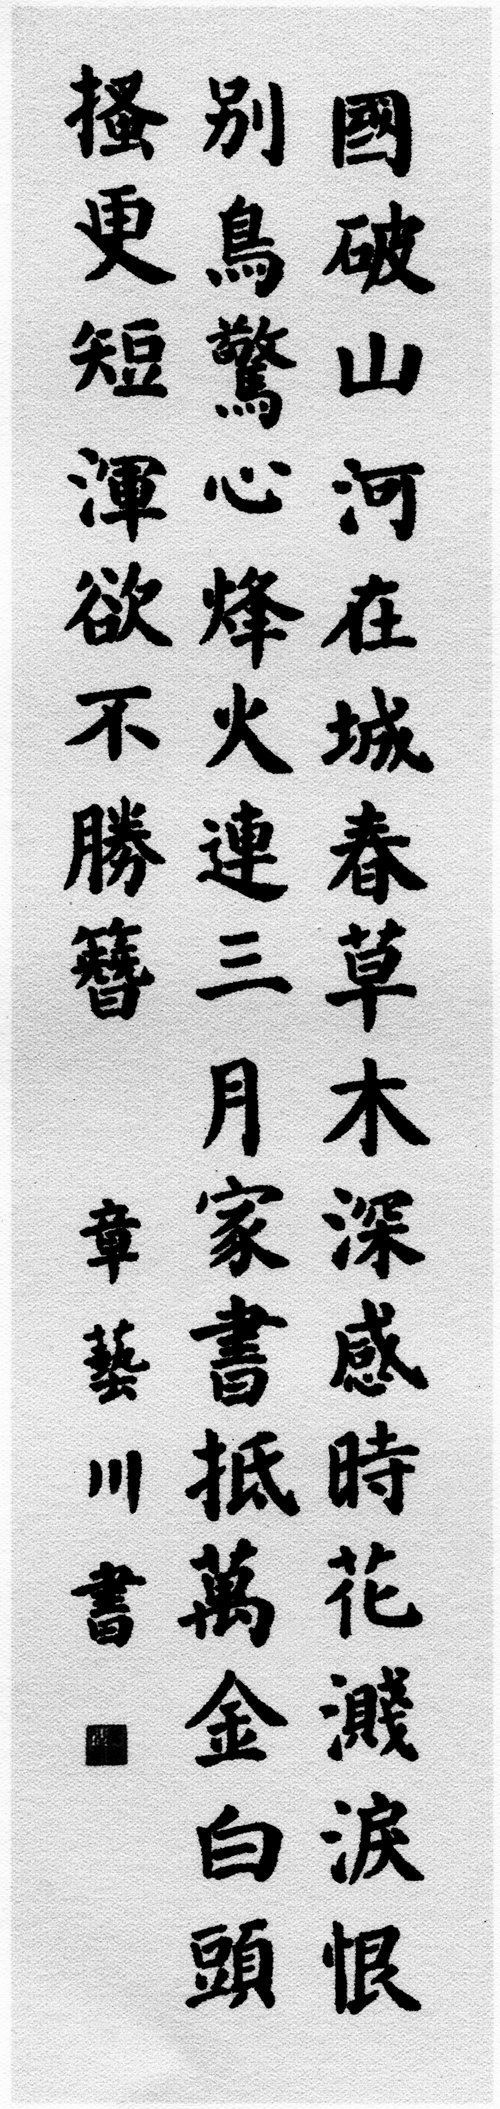 國破山河在城春草木深感時花濺淚恨
別鳥驚心烽火連三月家書抵萬金白頭
搔更短渾欲不勝簪
章藝川書